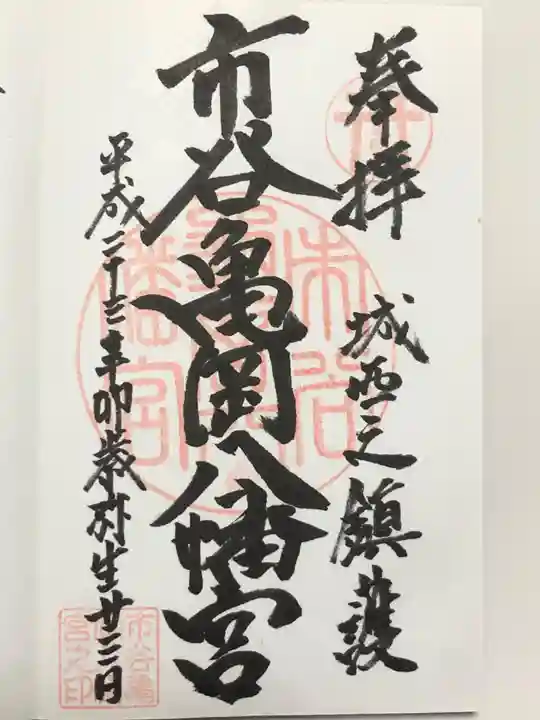 奉拝
城西之鎮護
市谷亀岡八幡宮
平成二十三年卯歳弥生廿二日
市谷亀岡八幡宮
市谷亀
宮之印